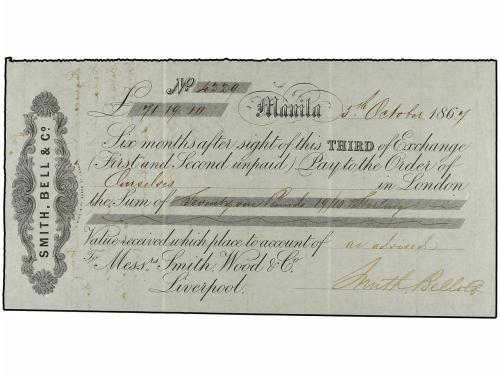 SMITH, BELL & Co.
No 4220
£ 71.19.10 Manila 5th October 1867
Six months after sight of this THIRD of Exchange
(First and Second unpaid) Pay to the Order of
Ourselves in London
the Sum of Seventy one Pounds 19/10 Sterling
Value received which place to account of as advised
To Messrs Smith, Wood & Co.
Liverpool.
Smith Bell & Co